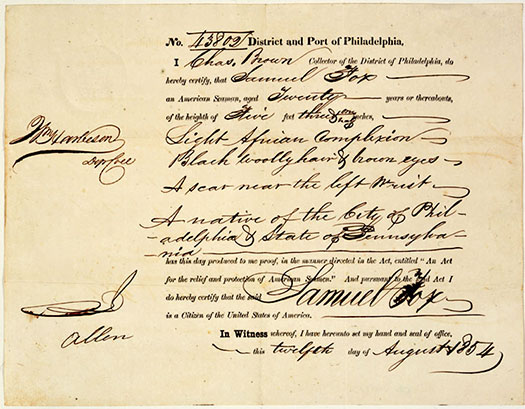 No. 43802 District and Port of Philadelphia,
I Chas. Brown Collector of the District of Philadelphia, do
hereby certify, that Samuel Fox
an American Seaman, aged Twenty years or thereabouts,
of the heighth of Five feet three & one half inches,
Light African Complexion
Black woolly hair & brown eyes
A scar near the left Wrist
A native of the City of Phil-
adelphia & State of Pennsylva-
nia
has this day produced to me proof, in the manner directed in the Act, entitled "An Act
for the relief and protection of American Seamen." And pursuant to the said Act I
do hereby certify that the said Samuel Fox
is a Citizen of the United States of America.
In Witness whereof, I have hereunto set my hand and seal of office,
this twelfth day of August 1854
Wm
Dep Coll
Allen